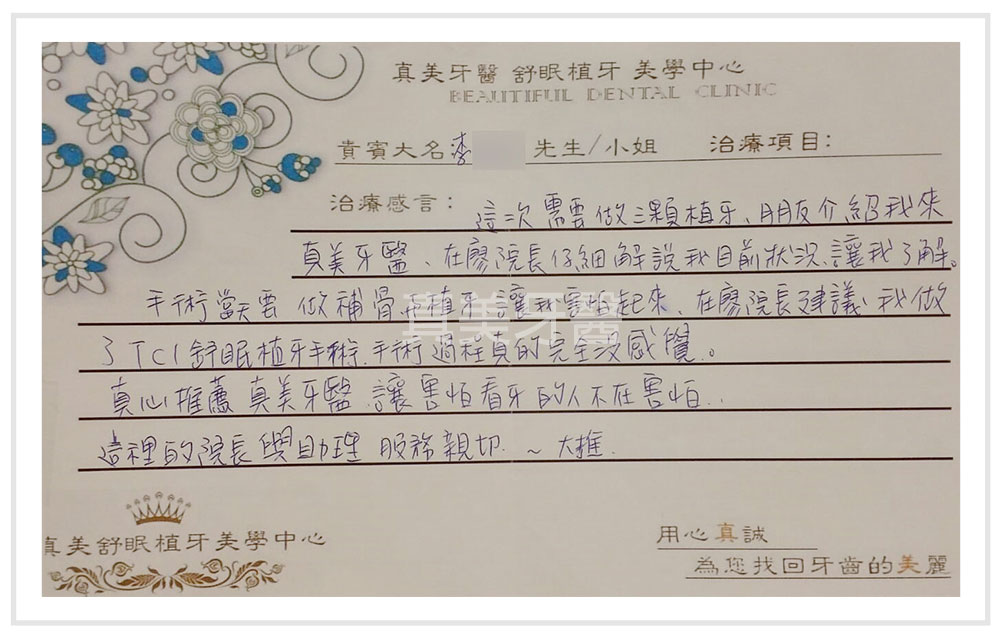 真美牙醫 舒眠植牙 美學中心
BEAUTIFUL DENTAL CLINIC
貴賓大名 李 先生/小姐 治療項目:
治療感言: 這次需要做三顆植牙、朋友介紹我來
真美牙醫、在廖院長仔細解說我目前狀況、讓我了解。
手術當天要做補骨和植牙讓我害怕起來、在廖院長建議我做
了TCI舒眠植牙手術.手術過程真的完全沒感覺。
真心推薦真美牙醫.讓害怕看牙的人不在害怕..
這裡的院長與助理 服務親切.~大推.
真美牙醫
真美舒眠植牙美學中心
用心真誠
為您找回牙齒的美麗